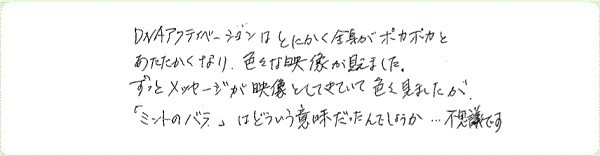 DNAアクティベーションはとにかく全身がポカポカと
あたたかくなり、色々な映像が見えました。
ずっとメッセージが映像としてきていて色々見ましたが、
「ミントのバラ」はどういう意味だったんでしょうか…不思議です